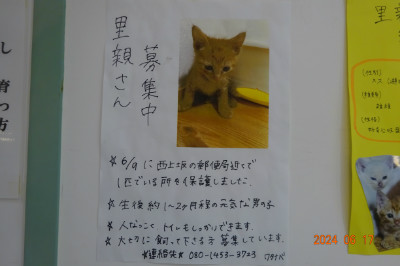 里親さん
募集中
☆ 6/9に西上坂の郵便局近くで
1匹でいる所を保護しました。
☆ 生後約1~2ヶ月程の元気な男の子
☆ 人なつこく トイレもしっかりできます。
☆ 大切に飼って下さる方募集しています。
☆連絡先☆ 080-1453-3723
し
育
つ
方
里親
2024 06 17